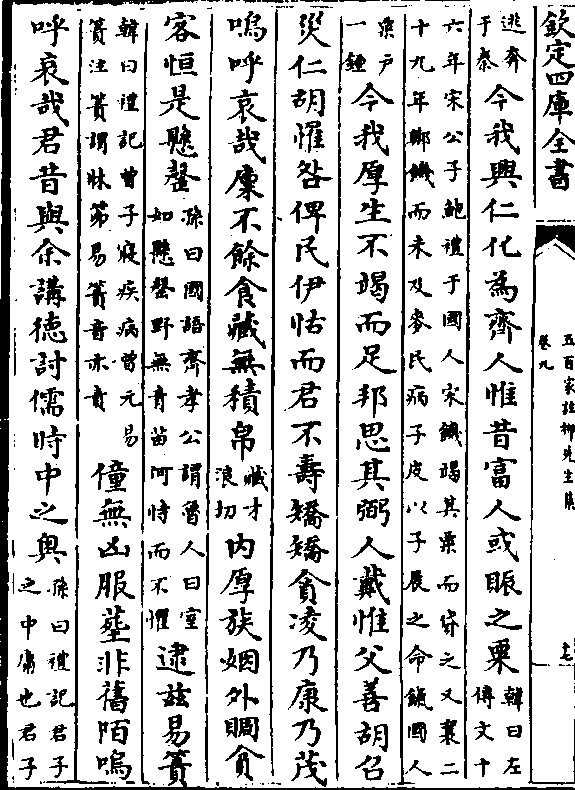 欽定四庫全書
五百家註柳先生集
卷九
十七
逃奔
于秦
今我興仁化為齊人惟昔富人或賑之粟
韓曰左
傳文十
六年宋公子鮑禮于國人宋饑竭其粟而貸之又襄二
十九年鄭饑而未及麥民病子皮以子展之命餼國人
粟戸
一鍾
今我厚生不竭而足邦思其弼人戴惟父善胡召
災仁胡懼咎俾民伊怙而君不壽矯矯貪凌乃康乃茂
嗚呼哀哉廩不餘食藏無積帛
藏才
浪切
内厚族姻外賙貧
客恒是懸罄
孫曰國語齊孝公謂魯人曰室
如懸罄野無青苗何恃而不懼
逮兹易簀
韓曰禮記曾子寢疾病曾元易
簀注簀謂牀笫易簀音亦責
僮無凶服塟非舊陌嗚
呼哀哉君昔與余講徳討儒時中之奥
孫曰禮記君子
之中庸也君子